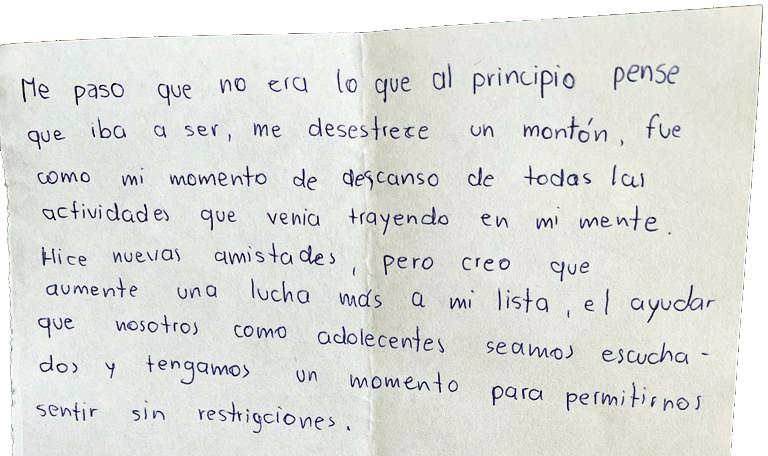 Me paso que no era lo que al principio pense
que iba a ser, me desestrece un montón, fue
como mi momento de descanso de todas las
actividades que venia trayendo en mi mente.
Hice nuevas amistades, pero creo que
aumente una lucha más a mi lista, el ayudar
que nosotros como adolecentes seamos escucha-
dos y tengamos un momento para permitirnos
sentir sin restrigciones.